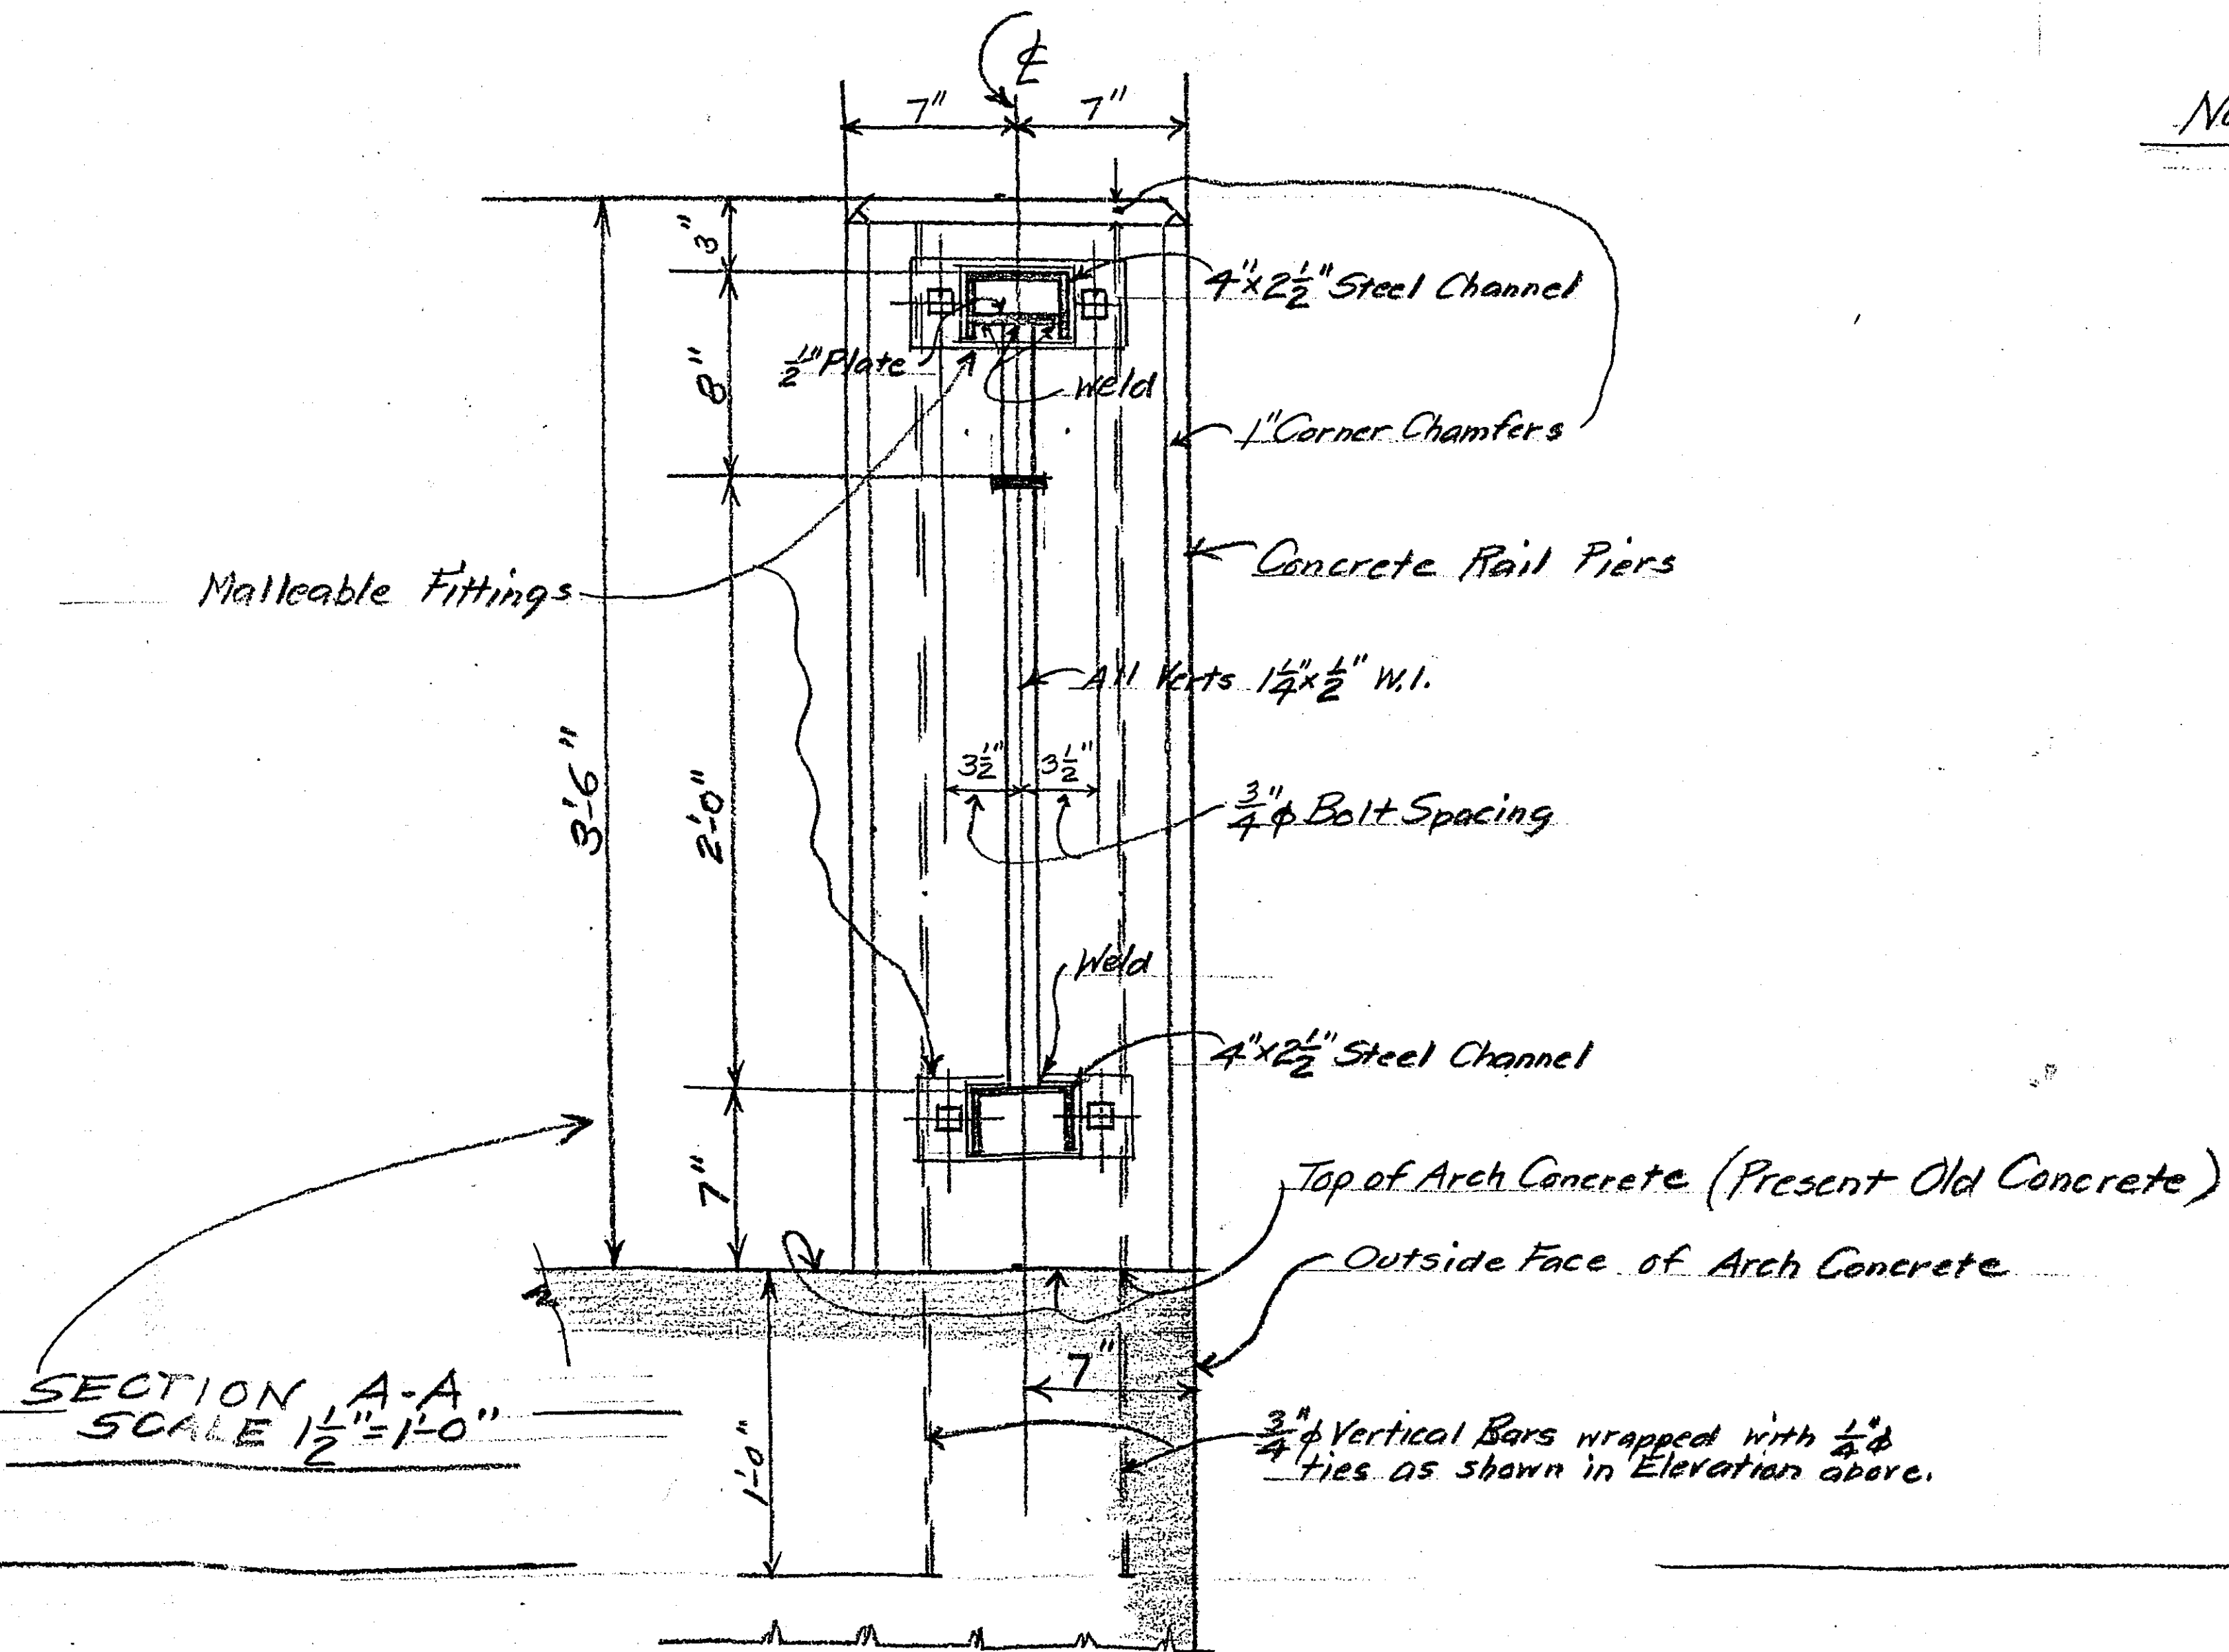 ℄
7" 7"
No
3"
4"x2½" Steel Channel
½" Plate
Weld
8"
1" Corner Chamfers
Concrete Rail Piers
Malleable Fittings
All Verts 1¼"x½" W.I.
3½" 3½"
3'-6"
2'-0"
¾"ϕ Bolt Spacing
Weld
4"x2½" Steel Channel
7"
Top of Arch Concrete (Present Old Concrete)
Outside Face of Arch Concrete
7"
SECTION A-A
SCALE 1½"=1'-0"
1'-0"
¾"ϕ Vertical Bars wrapped with ¼"ϕ
ties as shown in Elevation above.